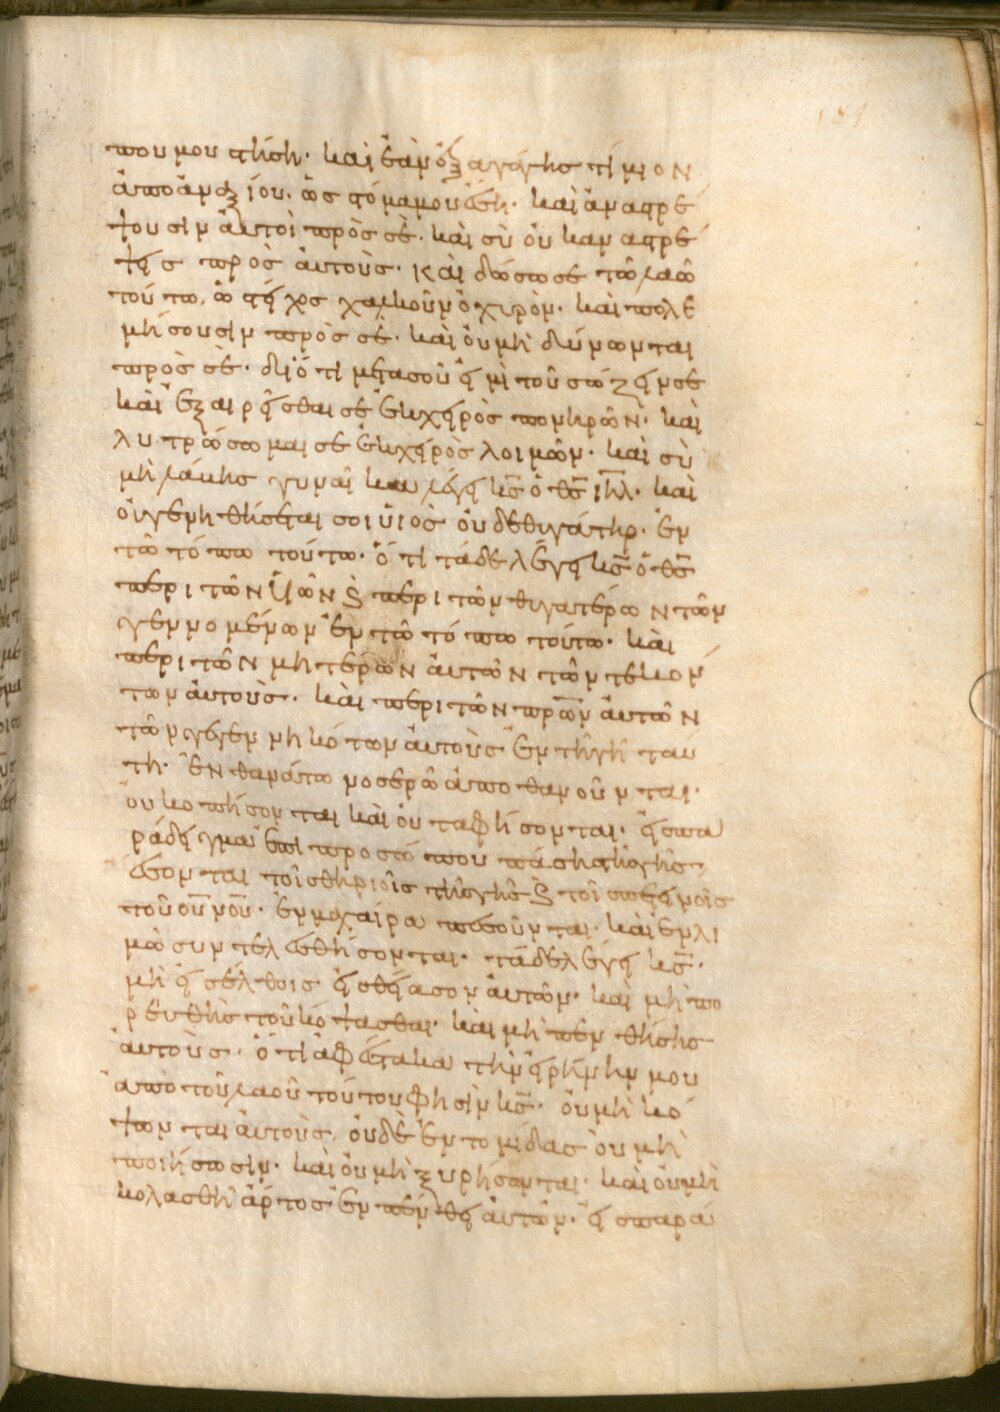 που μου στήση· καὶ ἐὰν ἐξαγάγης τίμιον
ἀπὸ ἀναξίου· ὡς στόμα μου ἔση· καὶ ἀναστρέ
ψουσιν αὐτοὶ πρὸς σὲ· καὶ σὺ οὐκ ἀναστρέ
ψεις πρὸς αὐτοὺς· καὶ δώσω σε τῶ λαῶ
τούτω, ὡς τείχος χαλκοῦν ὀχυρὸν· καὶ πολε
μήσουσιν πρὸς σὲ· καὶ οὐ μὴ δύνωνται
πρὸς σὲ· διότι μετὰ σοῦ εἰμὶ τοῦ σώζειν σε
καὶ ἐξαιρεῖσθαι σε ἐκ χειρὸς πονηρῶν· καὶ
λυτρώσωμαι σε ἐκ χειρὸς λοιμῶν· καὶ σὺ
μὴ λάκης γυναῖκα λέγει κ̅ς̅ ὁ θ̅ς̅ ι̅η̅λ̅· καὶ
οὐ γεννηθήσεται σοι ὑιὸς οὐδὲ θυγάτηρ· ἐν
τῶ τόπω τούτω· ὅτι τάδε λέγει κ̅ς̅ ὁ θ̅ς̅
περι τῶν ὑἱῶν ϗ περι τῶν θυγατέρων τῶν
γεννομένων ἐν τῶ τόπω τούτω· καὶ
περι τῶν μητέρων αὐτῶν τῶν τεκόν
των αὐτοὺς· καὶ περι τῶν π̅ρ̅ω̅ν̅ αὐτῶν
τῶν γεγεννηκότων αὐτοὺς ἐν τῆ γῆ ταύ
τη· ἐν θανάτω νοσερῶ ἀποθανοῦνται·
οὐ κοπήσονται καὶ οὐ ταφήσονται· εἰς πα
ράδειγμα ἐπὶ προσώπου πάσης τῆς γῆς
ἔσονται τοῖς θηρίοις τῆς γῆς ϗ τοῖς πετεινοῖς
τοῦ ο̅υ̅ν̅ο̅υ̅· ἐν μαχαίρα πεσοῦνται· καὶ ἐν λι
μῶ συντελεσθήσονται· τάδε λέγει κ̅ς̅·
μὴ εἰσέλθοις εἰς θείασον αὐτῶν· καὶ μὴ πο
ρευθῆς τοῦ κόψασθαι· καὶ μὴ πενθήσης
αὐτοὺς· ὅτι ἀφέστακα τὴν εἰρήνην μου
ἀπὸ τοῦ λαοῦ τούτου φησὶν κ̅ς̅· οὐ μὴ κό
ψωνται αὐτοὺς, οὐδὲ ἐντομίδας οὐ μὴ
ποιήσωσιν· καὶ οὐ μὴ ξυρήσονται· καὶ οὐ μὴ
κολασθῆ ἄρτος ἐν πένθει αὐτῶν· εἰς παρά